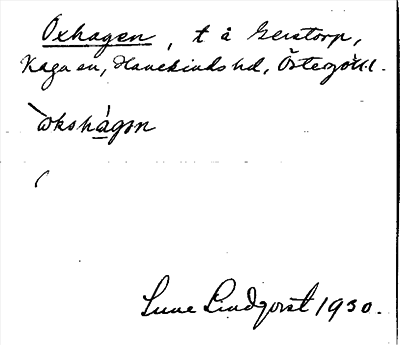 Oxhagen, t å Gerstorp,
Kaga sn, Hanekinds hd, Östergötl.
òkshágen
Sune Lindqvist 1930.